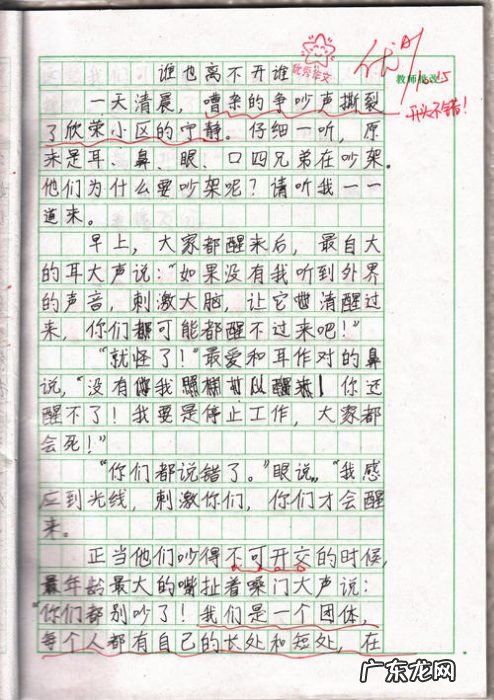 谁也离不开谁
优秀作文
优A+
教师批改
10.15
开头不错!
一天清晨,嘈杂的争吵声撕裂
了欣荣小区的宁静。仔细一听,原
来是耳、鼻、眼、口四兄弟在吵架。
他们为什么要吵架呢?请听我一一
道来。
早上,大家都醒来后,最自大
的耳大声说:“如果没有我听到外界
的声音,刺激大脑,让它清醒过
来,你们都可能都醒不过来吧!”
“就怪了!”最爱和耳作对的鼻
说,“没有我照样可以醒来!你还
醒不了!我要是停止工作,大家都
会死!”
“你们都说错了。”眼说,“我感
应到光线,刺激你们,你们才会醒
来。
正当他们吵得不可开交的时候,
最年龄最大的嘴扯着嗓门大声说:
“你们都别吵了!我们是一个团体,
每个人都有自己的长处和短处,在
广东龙网